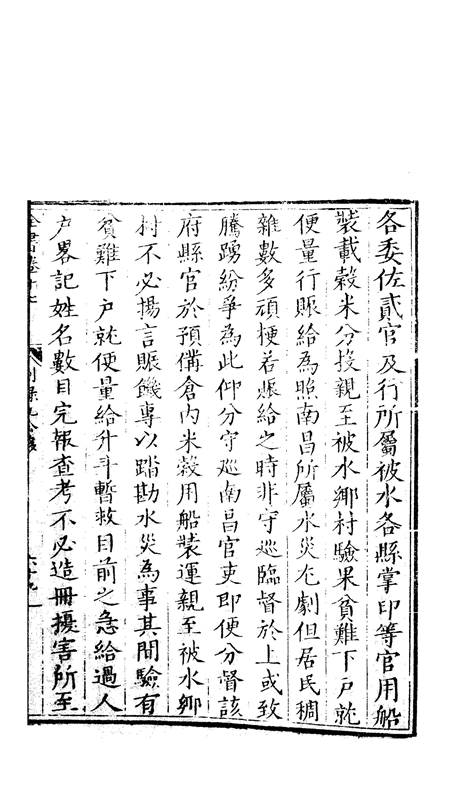 各委佐貳官及行所屬被水各縣掌印等官用船
裝載穀米分投親至被水鄉村驗果貧難下戶就
便量行賑給為照南昌所屬水災尤劇但居民稠
雜數多頑梗若賑給之時非守巡臨督於上或致
騰踴紛爭為此仰分守巡南昌官吏即便分督該
府縣官於預備倉內米穀用船裝運親至被水鄉
村不必揚言賑饑專以踏勘水災為事其間驗有
貧難下戶就便量給升斗暫救目前之急給過人
户畧記姓名數目完報查考不必造冊擾害所至